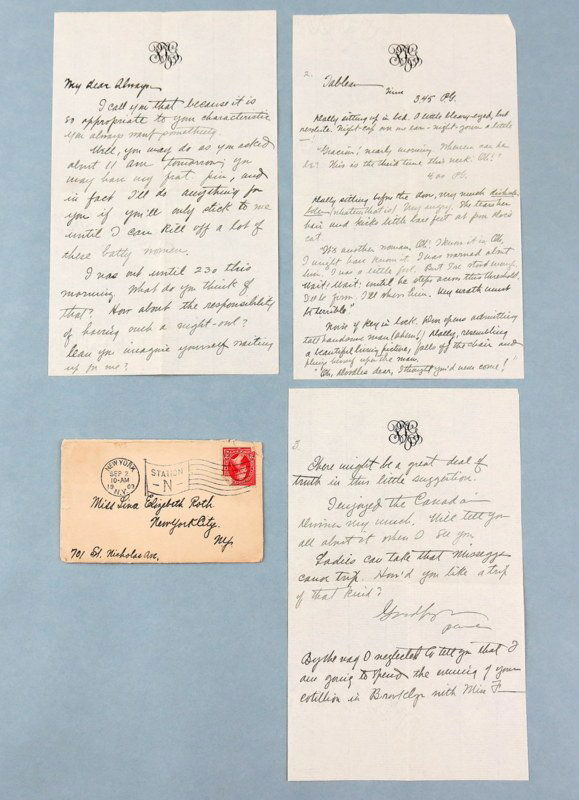 My dear Always
I call you that because it is
so appropriate to your characteristic
you always want something.
Well, you may do as you asked
about 11 A.M. tomorrow; you
may have my frat pin, and
in fact I'll do anything for
you if you'll only stick to me
until I can kill off a lot of
these batty women.
I was out until 2 30 this
morning. What do you think of
that? How about the responsibility
of having such a night-out?
Can you imagine yourself waiting
up for me?
2.
Tableau
Time
3.45
sitting up in bed. A little bleary-eyed, but
Night cap on one ear - night-gown a little
"Gracious! nearly morning. Wherever can he
be? This is the third time this week. Oh!"
4.00
sitting before the door, very much
(whatever that is). Very angry. She tears her
hair and kicks little bare feet at poor
cat.
"It's another woman, Oh! I know it is. Oh,
I might have known it. I was warned about
him. I was a little fool. But I've stood enough.
Wait! Wait! until he steps across this threshold.
I'll be firm. I'll show him. My wrath must
be terrible"
Noise of key in lock. Door opens admitting
tall handsome man (ahem!) resembling
a beautiful living picture, falls off the chair and
herself upon the man.
"Oh, dear, I thought you'd never come!"
3.
There might be a great deal of
truth in this little suggestion.
I enjoyed the Canada
very much. Will tell you
all about it when I see you.
Ladies can take that
canoe trip. How'd you like a trip
of that kind?
By the way I neglected to tell you that I
am going to spend the evening of your
cotillion in Brooklyn with Miss F
NEW YORK
SEP 2
10-AM
N.Y.
STATION
-N-
Miss Lina Elizabeth Roth
New York City.
N.Y.
701 St. Nicholas Ave.